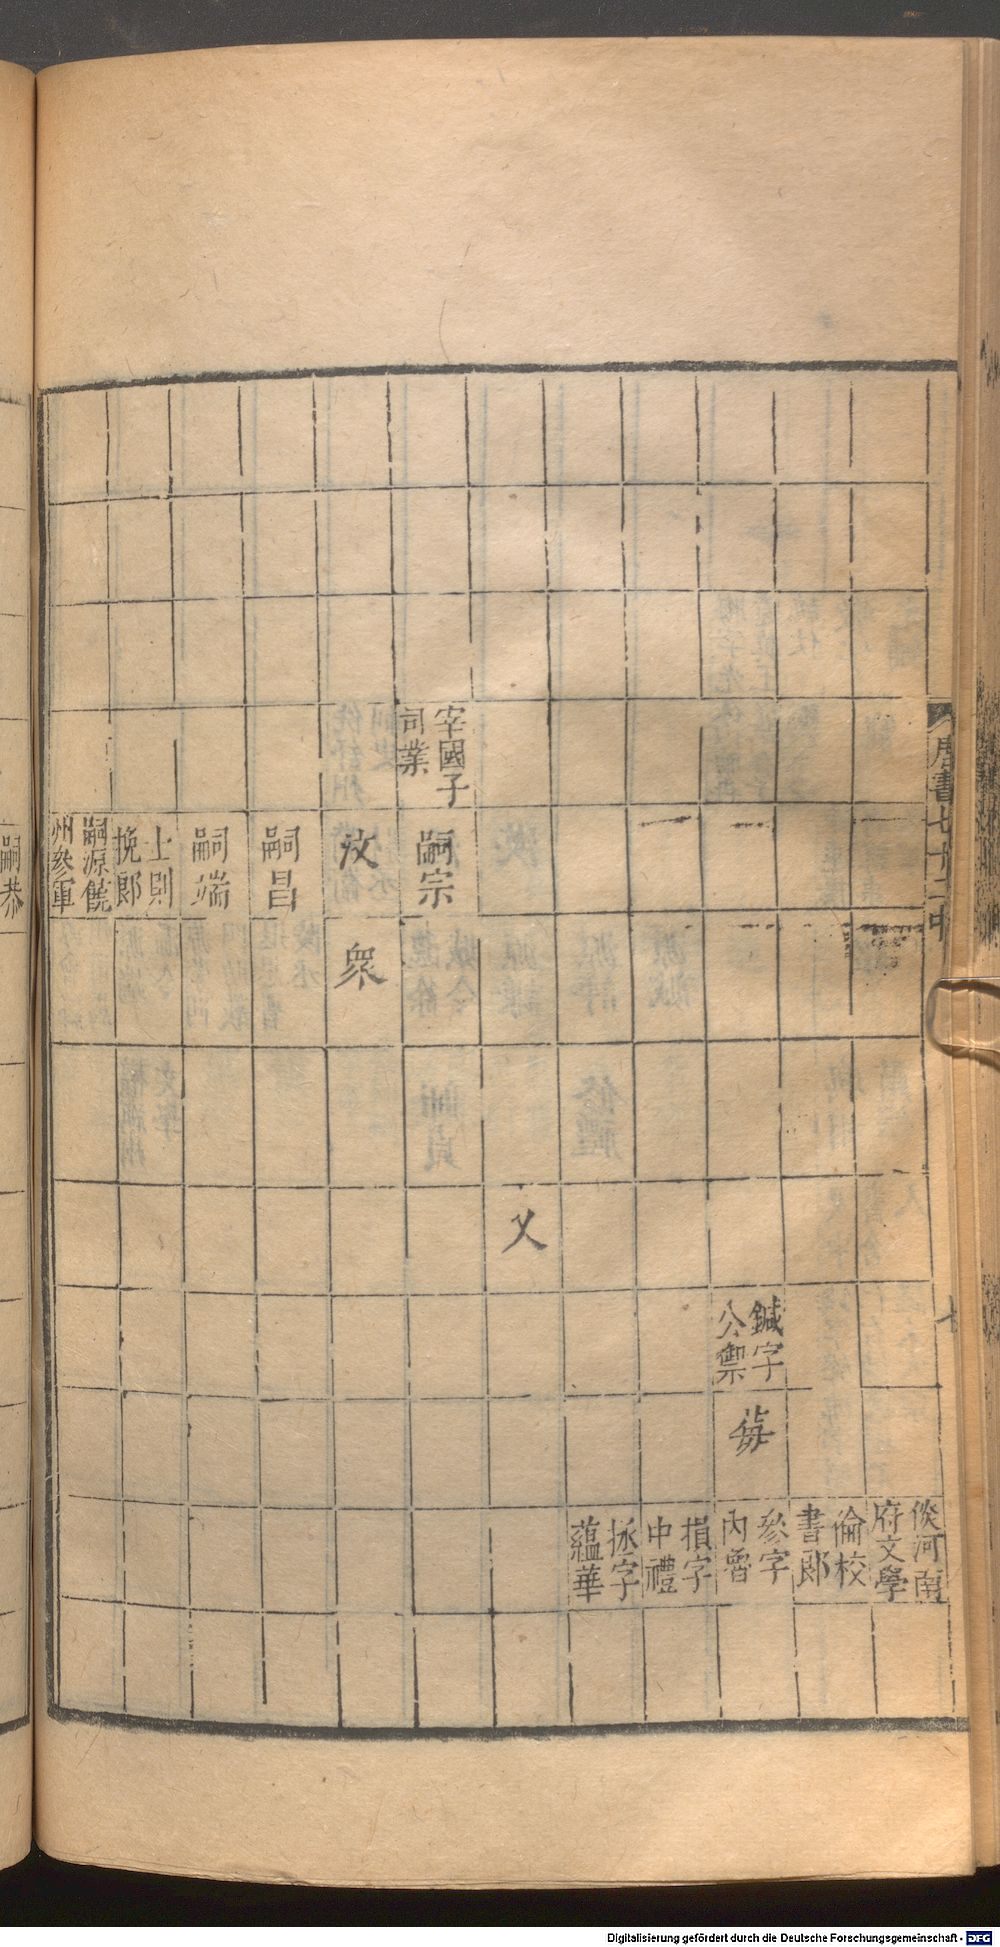 倓河南
府文學
倫校
書郎
參字
內魯
損字
中禮
拯字
蘊華
鍼字
公禦
每
乂
宰國子
司業
嗣宗
汶
眾
嗣昌
嗣端
士則
挽郎
嗣源饒
州參軍
嗣恭
Digitalisierung gefördert durch die Deutsche Forschungsgemeinschaft - DFG